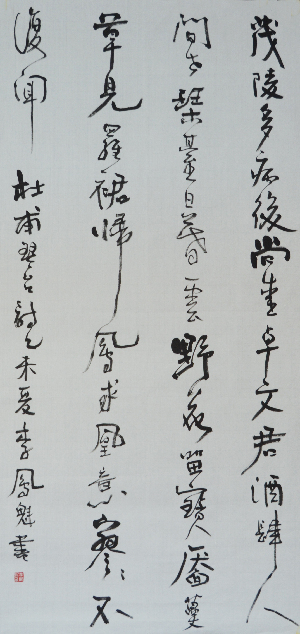 茂陵多病後尚愛卓文君酒肆人
間世琴臺日暮雲野花留寶靨蔓
草見羅裙歸鳳求凰意寥寥不
復聞
杜甫琴台詩乙未夏李鳳魁書